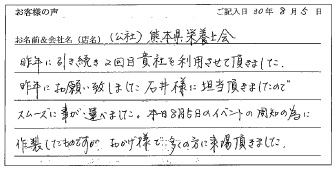 お客様の声 ご記入日 30年 8月 5日
お名前＆会社名（店名） (公社) 熊本県栄養士会
昨年に引き続き2回目貴社を利用させて頂きました。
昨年にお願い致しました石井様に担当頂きましたので
スムーズに事が運べました。本日8月5日のイベントの周知の為に
作製したものですが、おかげ様で多くの方に来場頂きました。